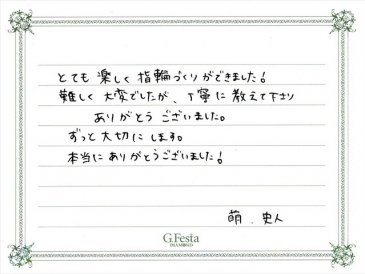 とても 楽しく 指輪づくりができました!
難しく 大変でしたが、丁寧に 教えて下さり
ありがとう ございました。
ずっと大切に します。
本当に ありがとうございました!
萌. 史人
G.Festa
DIAMOND